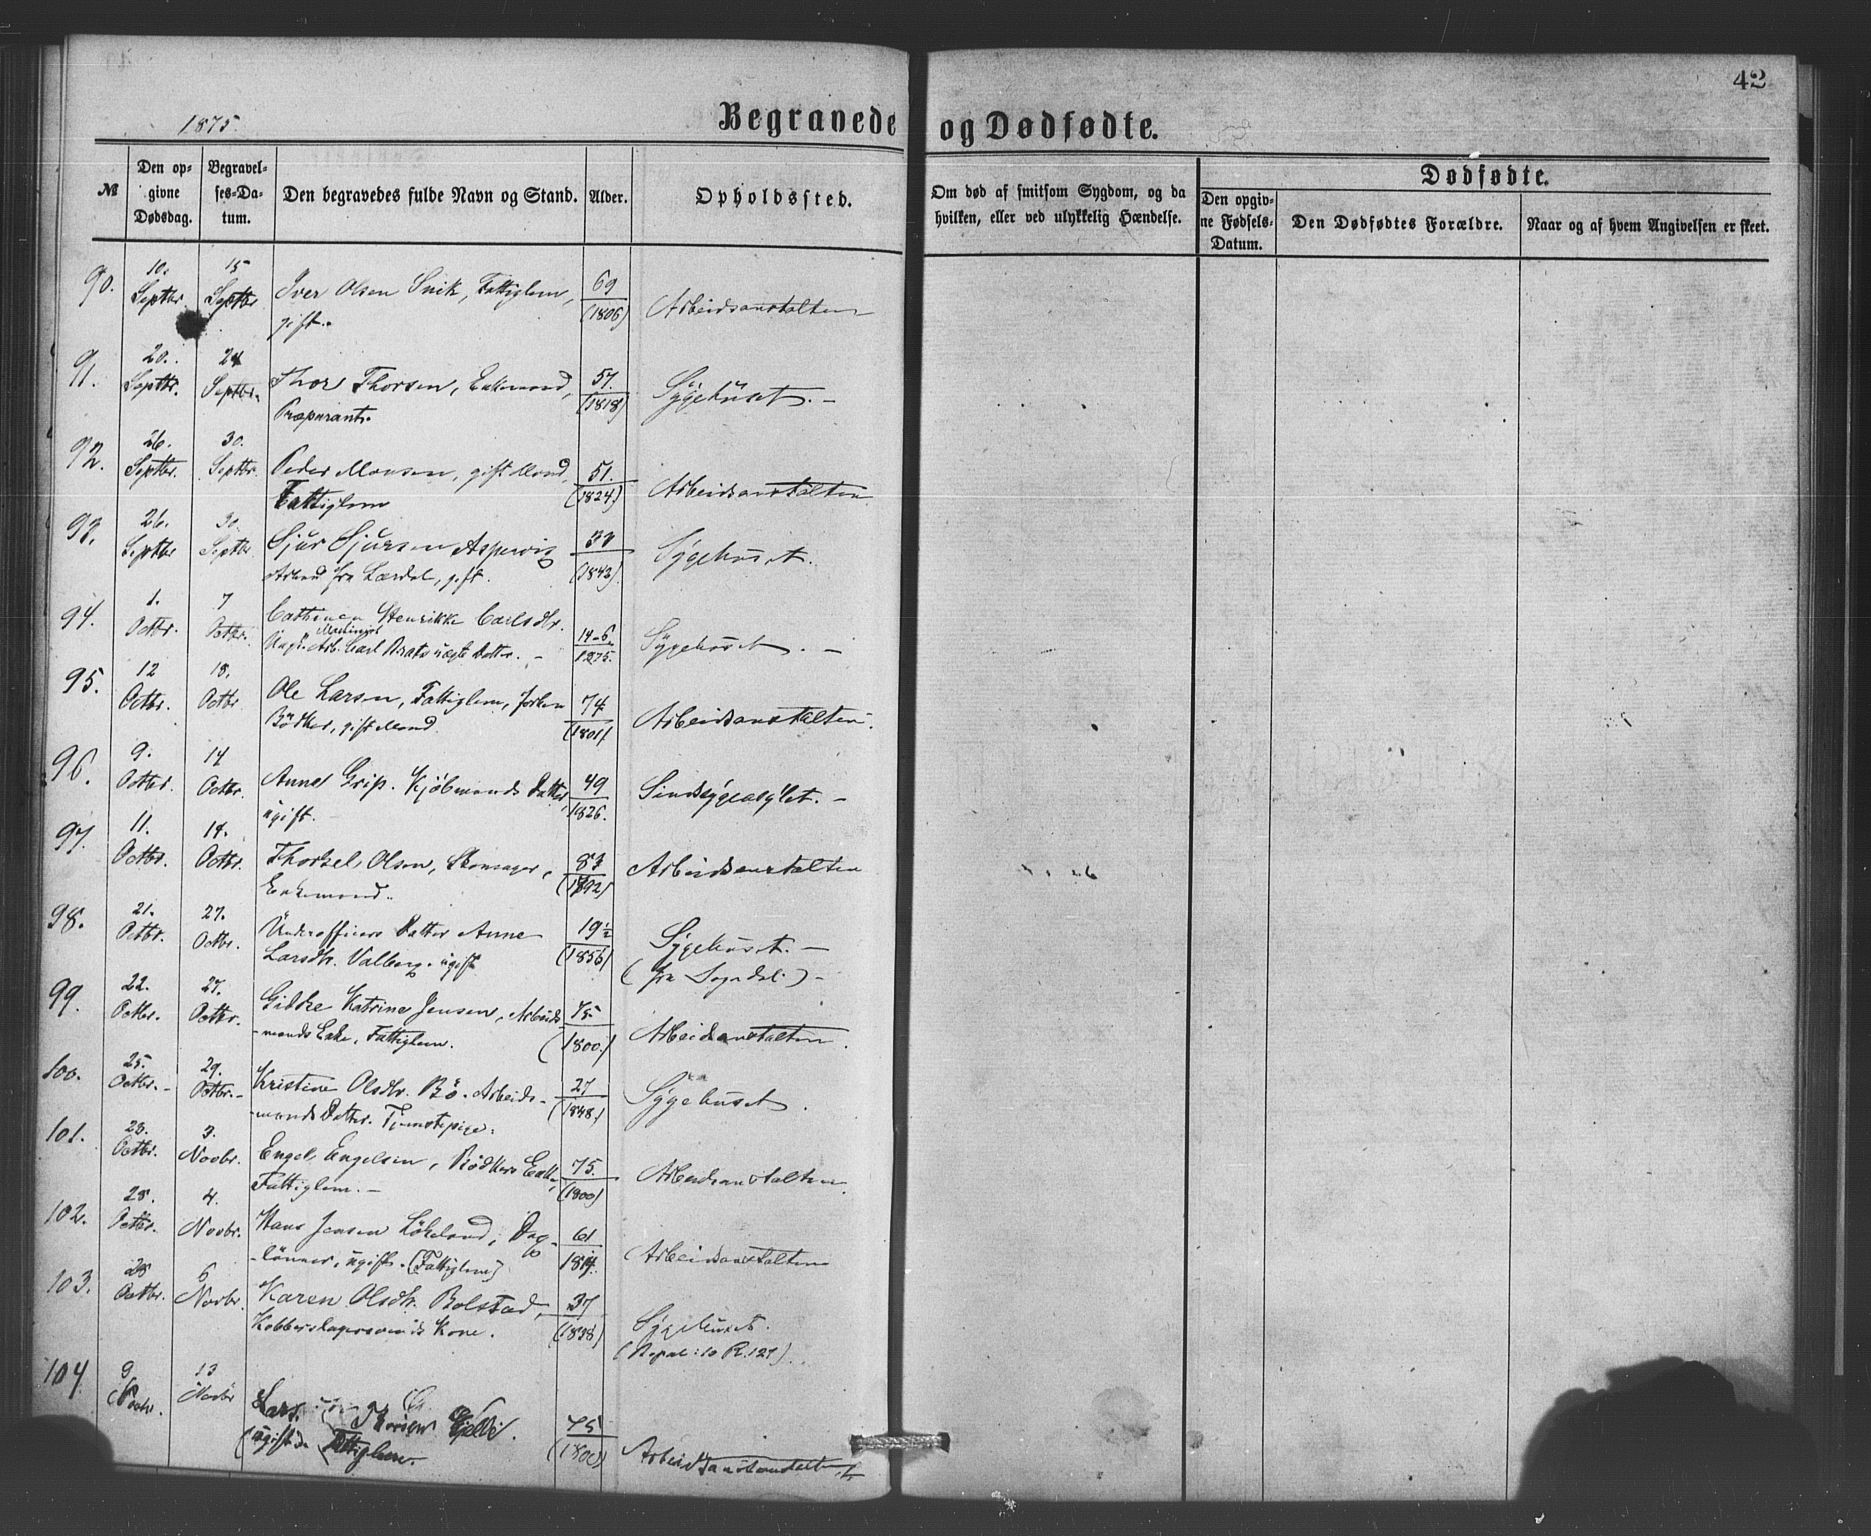 42
1875.
Begravede og Dødfødte.
№
Den opgivne Dødsdag.
Begravelses-Datum.
Den begravedes fulde Navn og Stand.
Alder.
Opholdssted.
Om død af smitsom Sygdom, og da hvilken, eller ved ulykkelig Hændelse.
Dødfødte.
Den opgivne Fødsels-Datum.
Den Dødfødtes Forældre.
Naar og af hvem Angivelsen er skeet.
90. 10. Septbr. 15 Septbr Iver Olsen Snik, Fattiglem, 69 Arbeidsanstalten
gift. (1806)
91. 20. Septbr. 24 Septbr. Thor Thorsen, Enkemand, 57. Sygehuset. –
Præparant. (1818)
92. 26. Septbr. 30. Septbr. Peder Monsen, gift Mand, 51. Arbeidsanstalten
Fattiglem (1824)
93. 26. Septbr 30. Septbr. Sjur Sjursen 33 Sygehuset.
fra Lærdal, gift. (1842)
94. 1. Octbr. 7 Octbr. Henrikke Carlsdtr. 14-6 Sygehuset. –
Carl ægte Datter. – 1275.
95. 12 Octbr. 18. Octbr. Ole Larsen, Fattiglem, 74 Arbeidsanstalten.
Bødker, gift Mand. (1801)
96. 9. Octbr. 14 Octbr. Anne Grip. Kjøbmands Datter, 49 Sindsygeasylet. –
ugift. 1826.
97. 11. Octbr. 14. Octbr. Thorkel Olsen, Skomager, 83 Arbeidsanstalten
Enkemand. (1792)
98. 21. Octbr. 27. Octbr. Underofficers Datter Anne 19½ Sygehuset. –
Larsdtr. Valberg. ugift (1856) (fra Sogndal.) –
99. 22. Octbr. 27. Octbr. Gidske Katrine Jensen, Arbeids- 75 Arbeidsanstalten.
-mands Enke, Fattiglem. (1800.)
100. 25. Octbr. – 29. Octbr. – Kristine Olsdtr. Bö. Arbeids- 27 Sygehuset.
-mands Datter. Tjenstepige. (1848.)
101. 23. Octbr. 3. Novbr. Engel Engelsen, Bødkers Enke, 75. Arbeidsanstalten.
Fattiglem. – (1800)
102. 28. Octbr. 4. Novbr. Hans Jensen Lökeland, Dag- 61 Arbeidsanstalten
-lönner, ugift. (Fattiglem) 1814.
103. 28 Octbr. 6 Novbr. Karen Olsdtr. Bolstad, 37 Sygehuset.
Kobberslagersvends Kone. (1838) (Nepal: 10 R. 127).
104. 9 Novbr. 13 Novbr Lars 75 Arbeidsanstalten
ugift Fattiglem. (1800)